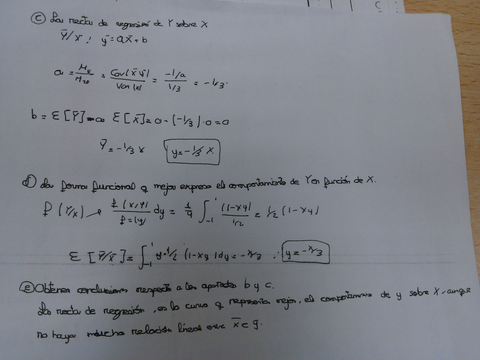 c) La recta de regresión de Y sobre X
Y/X: y = aX + b
a = M11/M20 = Cov(x,y)/Var(x) = -1/9 / 1/3 = -1/3.
b = E[Y] - a E[X] = 0 - (-1/3)·0 = 0
Y = -1/3 x y = -1/3 X
d) La forma funcional q mejor expresa el comportamiento de Y en función de X.
f(Y/X) → f(x,y)/f=(y) dy = 1/4 ∫-1 1 (1-xy)/1/2 = 1/2 (1-xy)
E[Y/X] = ∫-1 1 y·1/2 (1-xy) dy = -x/3 ∴ y = -x/3
e) Obtener conclusiones respecto a los apartados b y c.
La recta de regresión, es la curva q representa mejor, el comportamiento de y sobre X, aunque
no haya mucha relación lineal